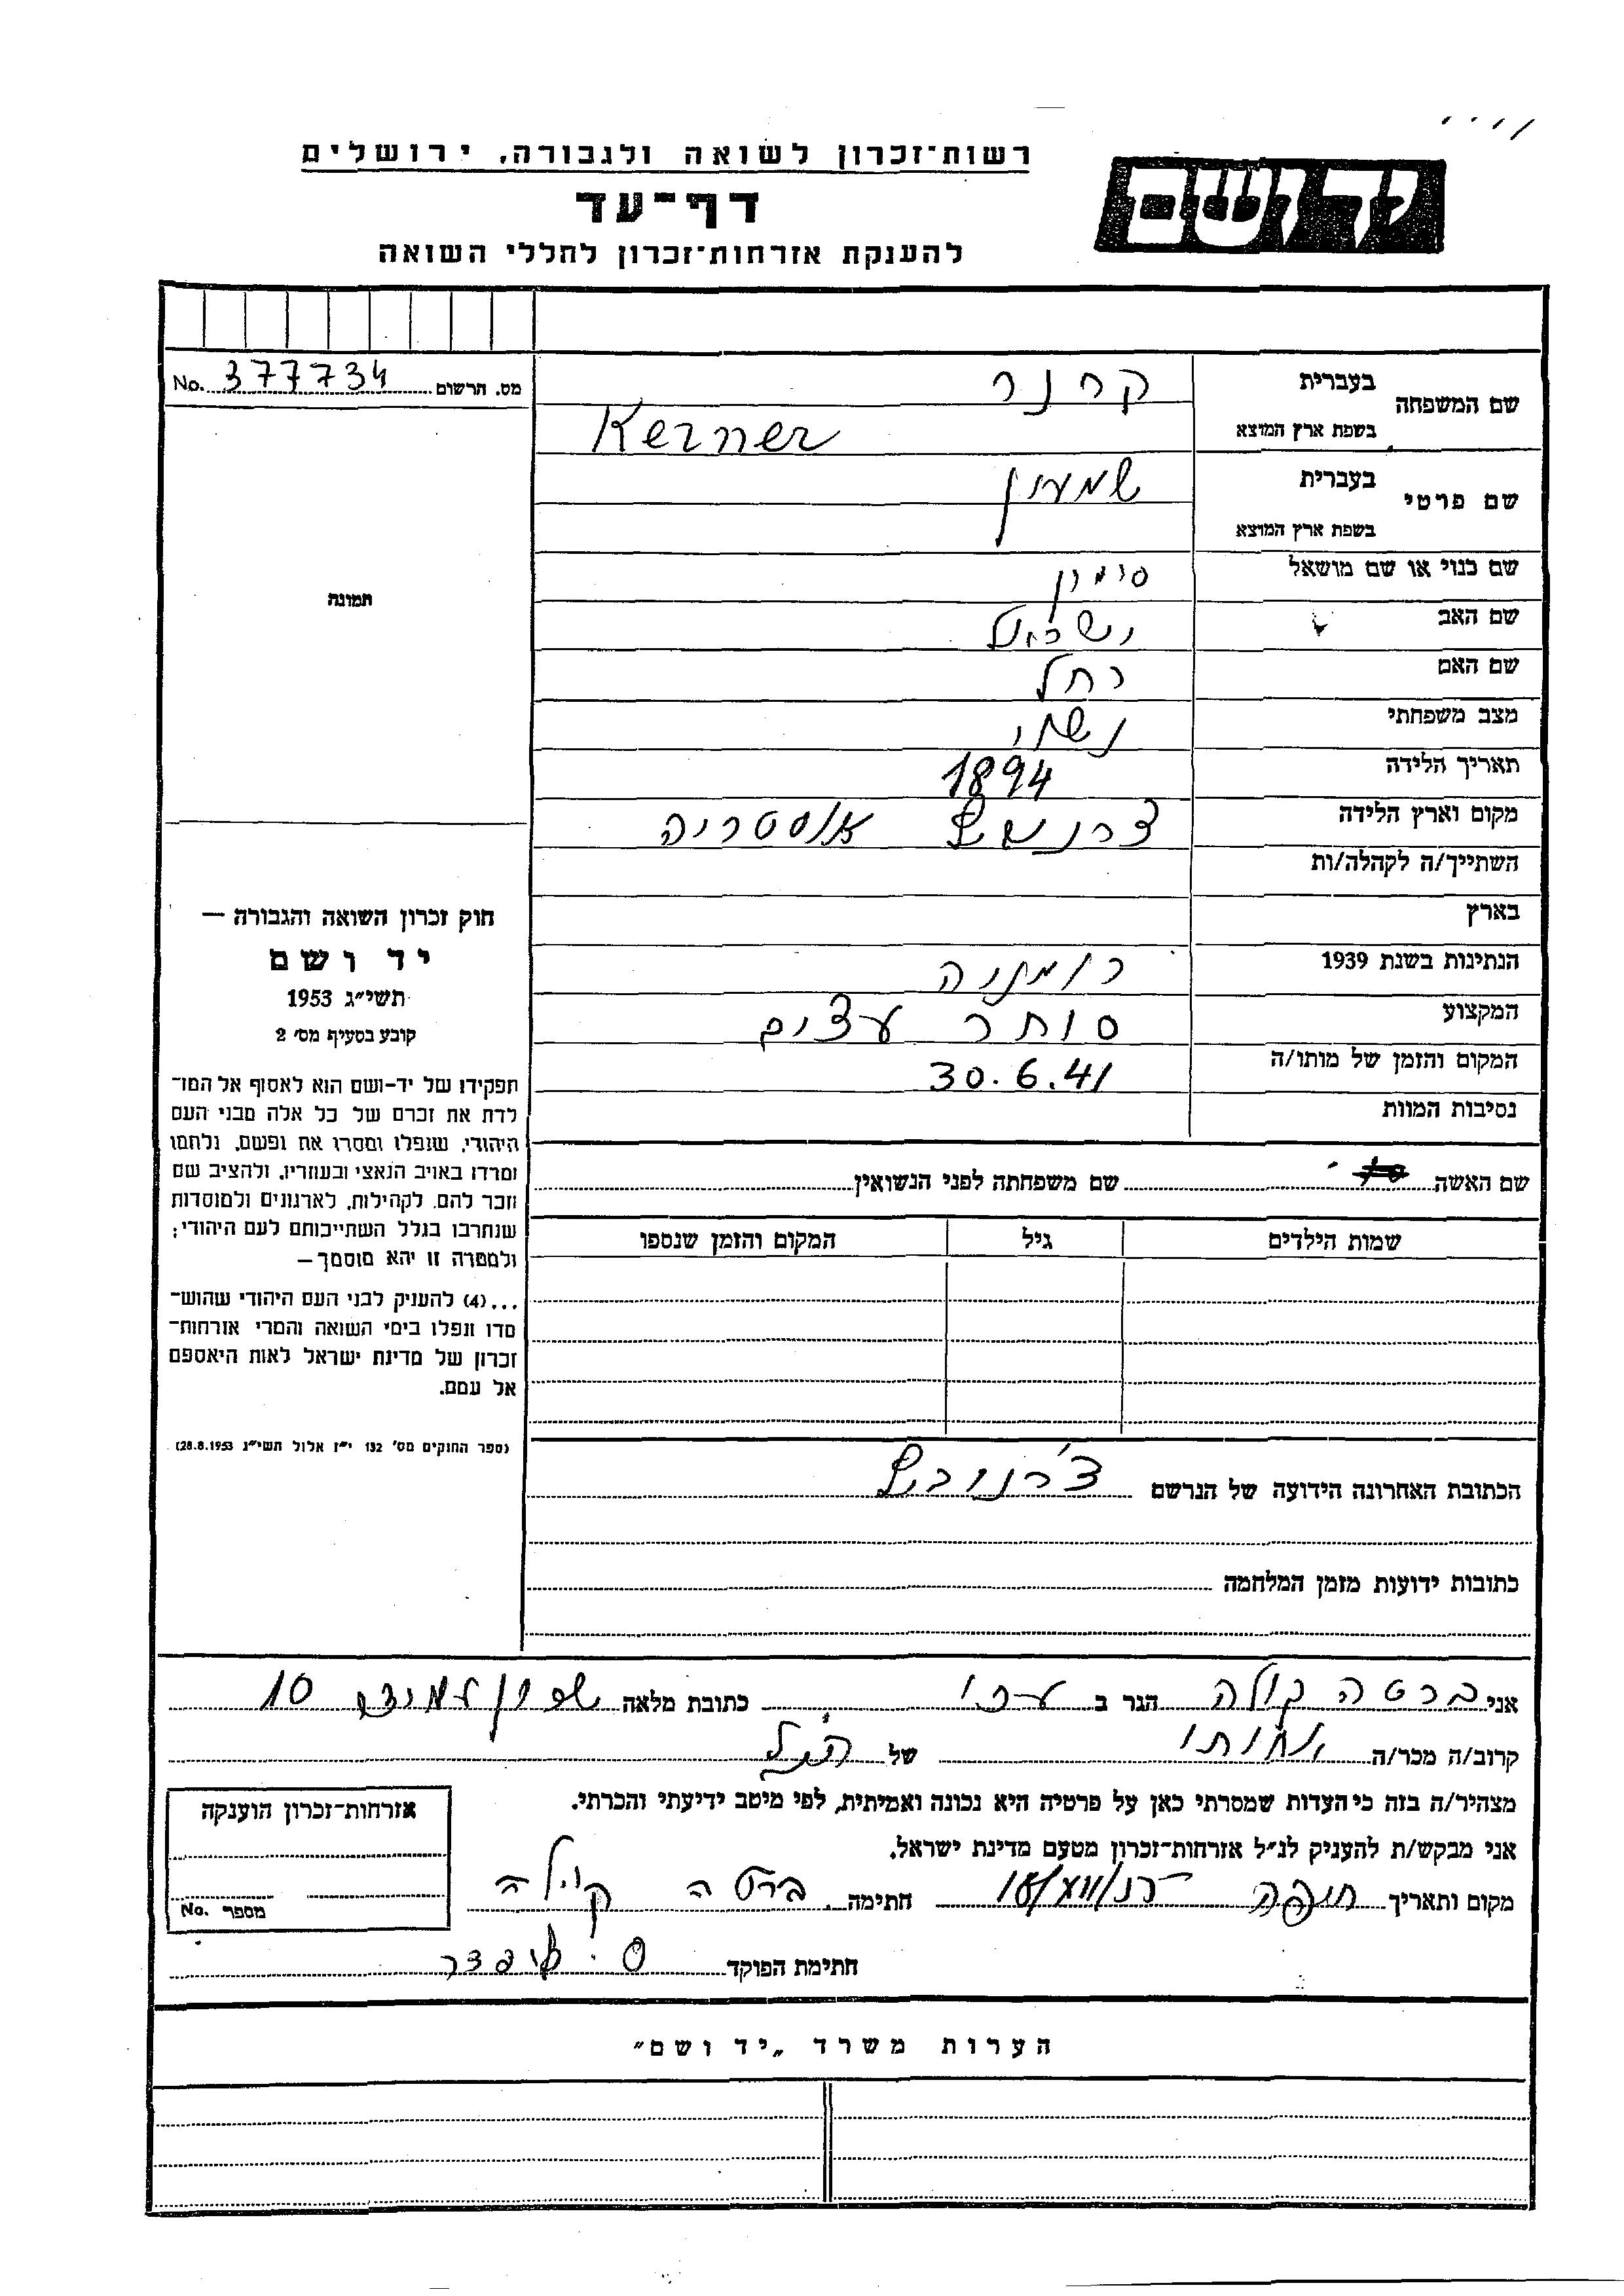 רשות־זכרון לשואה ולגבורה, ירושלים
יד ושם
דף־עד
להענקת אזרחות־זכרון לחללי השואה
שם המשפחה בעברית קרנר
בשפת ארץ המוצא Kerner
מס. הרשום 377734 No.
שם פרטי בעברית שמעון
בשפת ארץ המוצא
שם כנוי או שם מושאל סימון
תמונה
שם האב ישראל
שם האם רחל
מצב משפחתי נשוי
תאריך הלידה 1894
מקום וארץ הלידה אוסטריה
השתייך/ה לקהלה/ות
בארץ
הנתינות בשנת 1939 רומניה
המקצוע סוחר עצים
המקום והזמן של מותו/ה 30.6.41
נסיבות המוות
שם האשה שם משפחתה לפני הנשואין
שמות הילדים גיל המקום והזמן שנספו
חוק זכרון השואה והגבורה —
יד ושם
תשי״ג 1953
קובע בסעיף מס׳ 2
תפקידו של יד-ושם הוא לאסוף אל המו־
לדת את זכרם של כל אלה מבני העם
היהודי, שנפלו ומסרו את נפשם, נלחמו
ומרדו באויב הנאצי ובעוזריו, ולהציב שם
וזכר להם, לקהילות, לארגונים ולמוסדות
שנחרבו בגלל השתייכותם לעם היהודי;
ולמטרה זו יהא מוסמך—
...(4) להעניק לבני העם היהודי שהוש־
מדו ונפלו בימי השואה והמרי אזרחות־
זכרון של מדינת ישראל לאות היאספם
אל עמם.
(ספר החוקים מס׳ 132 י״ז אלול תשי״ג 28.8.1953)
הכתובת האחרונה הידועה של הנרשם צ׳רנוביץ
כתובות ידועות מזמן המלחמה
אני ברטה קולה הגר ב עכו כתובת מלאה 10
קרוב/ה מכר/ה אחותו של הנ״ל
מצהיר/ה בזה כי העדות שמסרתי כאן על פרטיה היא נכונה ואמיתית, לפי מיטב ידיעתי והכרתי.
אני מבקש/ת להעניק לנ״ל אזרחות־זכרון מטעם מדינת ישראל.
מקום ותאריך חיפה חתימה ברטה קולה
חתימת הפוקד
אזרחות־זכרון הוענקה
מספר No.
הערות משרד „יד ושם״